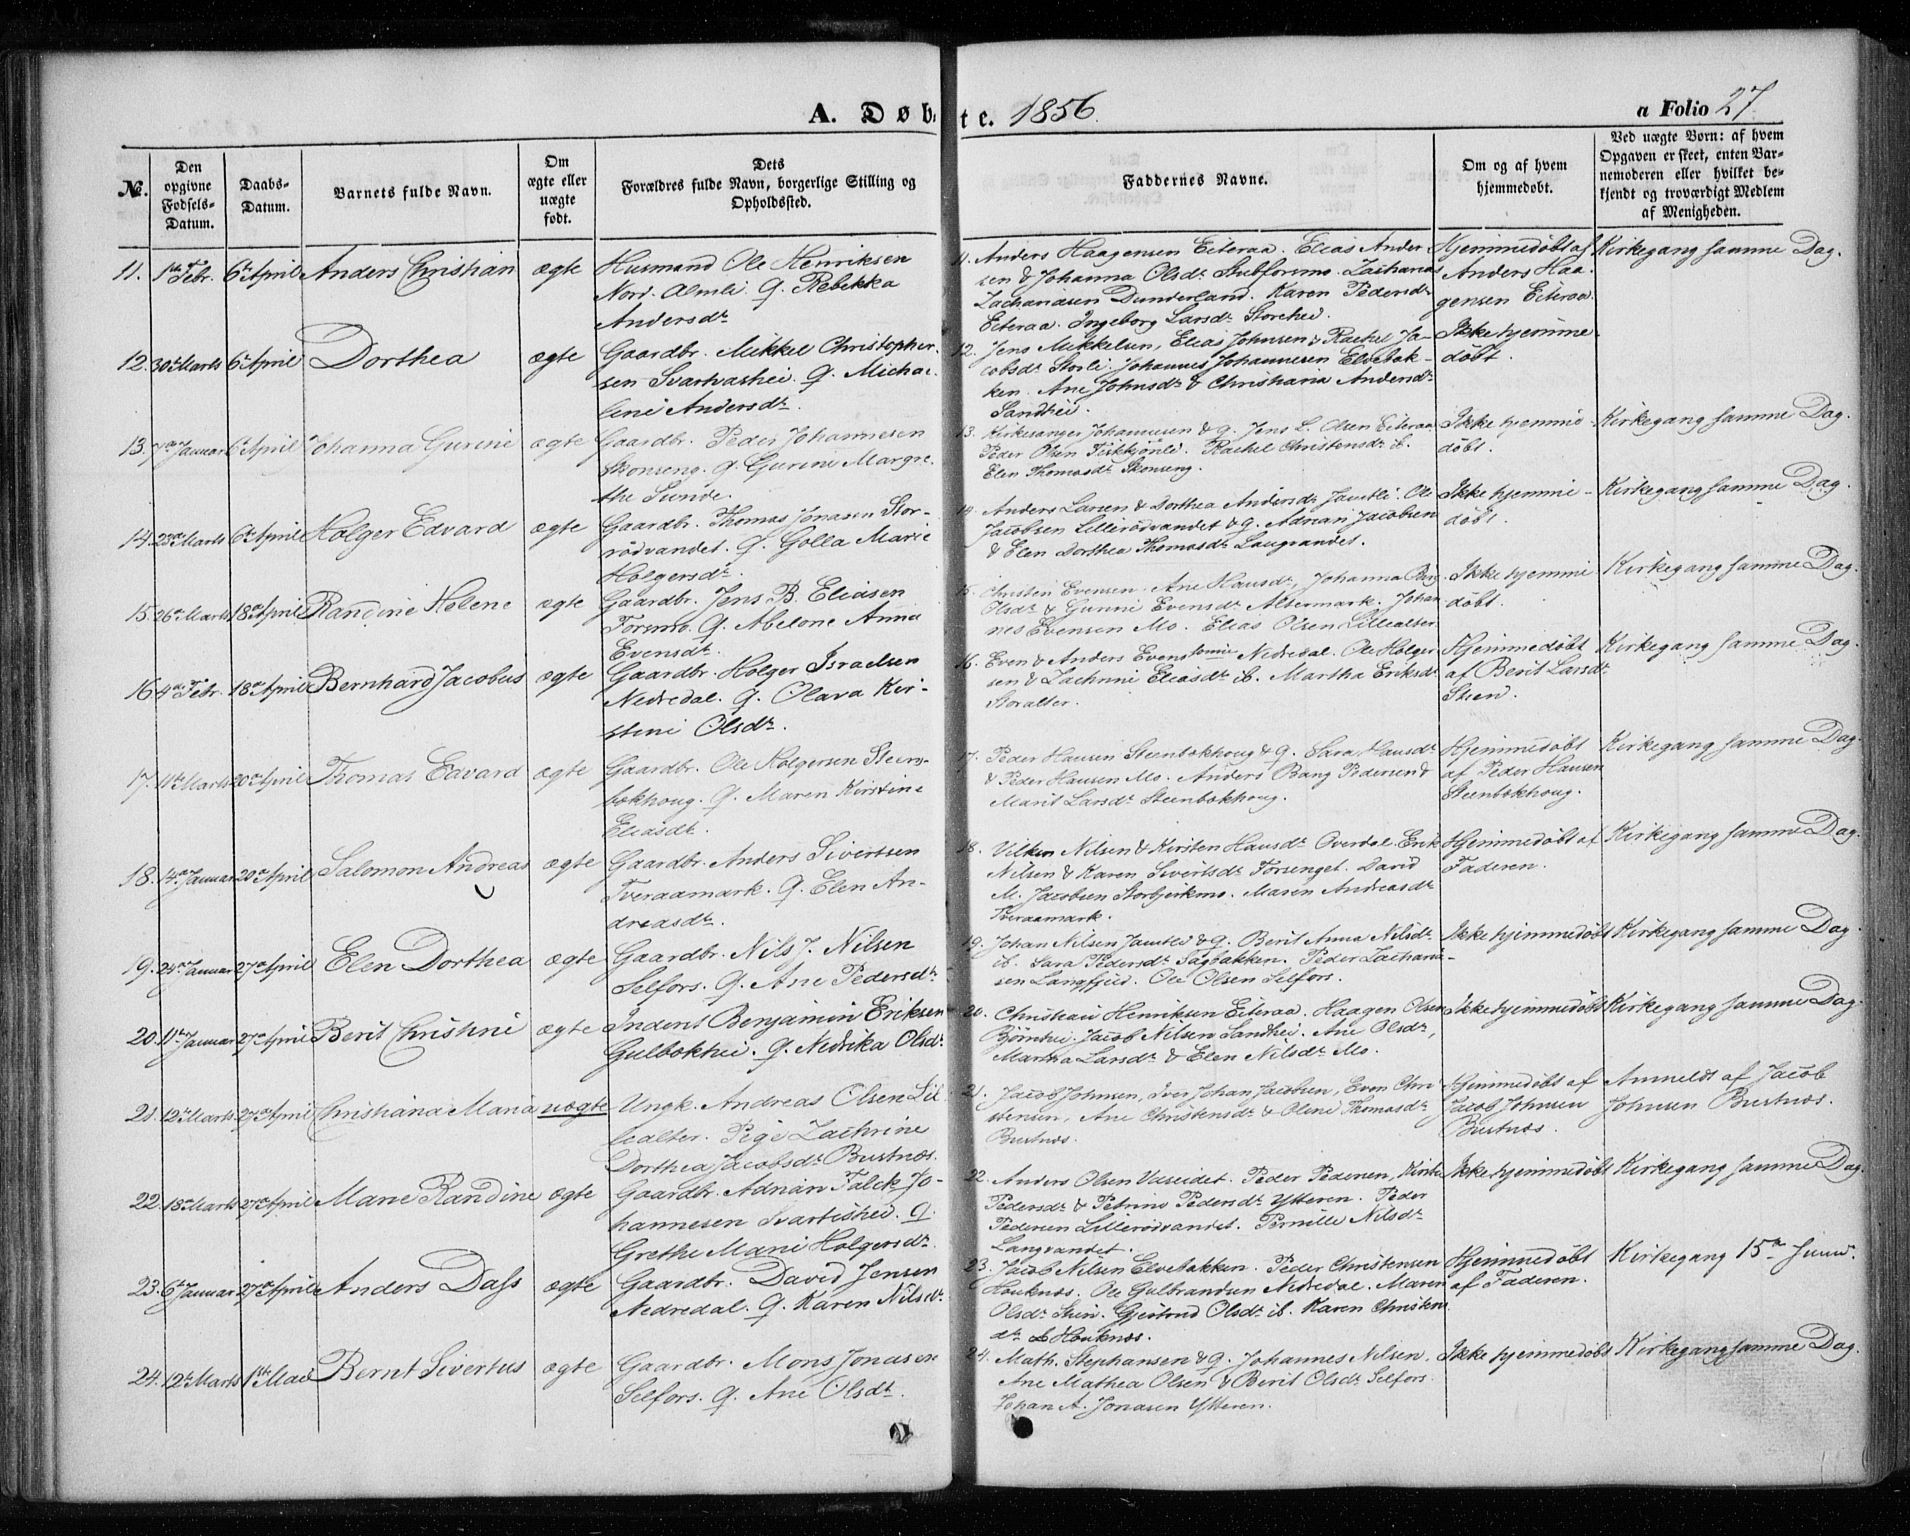 A. Døbte. 1856.
a Folio 27.
No.
Den opgivne Fødsels-Datum.
Daabs-Datum.
Barnets fulde Navn.
Om ægte eller uægte født.
Dets Forældres fulde Navn, borgerlige Stilling og Opholdssted.
Faddernes Navne.
Om og af hvem hjemmedøbt.
Ved uægte Børn: af hvem Opgaven er skeet, enten Barnemoderen eller hvilket bekjendt og troværdigt Medlem af Menigheden.
11. 1ste Febr. 6te April Anders Christian ægte Husmand Ole Henriksen
Nord. Almli. Q. Rebekka
Andersdr.
11. Anders Haagensen Eiteraa. Elias Ander
sen & Johanna Olsdr. Stubforsmo. Zacharias
Zachariasen Dunderland. Karen Pedersdr
Eiteraa. Ingeborg Larsdr. Storehei.
Hjemmedøbt af
Anders Haa
gensen Eiteraa.
Kirkegang samme Dag.
12. 30te Marts 6te April Dorthea ægte Gaardbr. Mikkel Christopher
sen Svartvashei. Q. Micha
line Andersdr.
12. Jens Mikkelsen, Elias Johnsen & Rachel Ja-
cobsdr. Storli. Johannes Johannesen Elvebak-
ken. Ane Johnsdr. & Christiana Andersdr.
Sandhei.
Ikke hjemme-
døbt.
13. Januar 6te April Johanna Gurine ægte Gaardbr. Peder Johannesen
Skonseng. Q. Gurine Margre
the Sunde.
13. Kirkesanger Johannesen & Q. Jens L. Olsen Eiteraa
Peder Olsen Fiskkjønli. Rachel Christensdr. ib.
Elen Thomasdr. Skonseng.
Ikke hjemme-
døbt.
Kirkegang samme Dag.
14. 23de Marts 6te April Holger Edvard ægte Gaardbr. Thomas Jonasen Stor-
rødvandet. Q. Golla Marie
Holgersdr.
14. Anders Larsen & Dorthea Andersdr. Jamtli. Ole
Jacobsen Lillerødvandet & Q. Adrian Jacobsen
& Elen Dorthea Thomasdr. Langvandet.
Ikke hjemme-
døbt.
Kirkegang samme Dag.
15. 26de Marts 18de April Randine Helene ægte Gaardbr. Jens B. Eliasen
Forsmo. Q. Abelone Anna
Evensdr.
15. Christen Evensen. Ane Hansdr, Johanna
Olsdr. & Gunni Evensdr. Altermark. Johan
nes Evensen Mo. Elias Olsen Lillealter
Ikke hjemme
døbt.
Kirkegang samme Dag.
16. 4de Febr. 18de April Bernhard Jacobus ægte Gaardbr. Holger Israelsen
Nedredal. Q. Olava Kir-
stine Olsdr.
16. Even & Anders Evens Nedredal. Ole Holger
sen & Zachrine Eliasdr. ib. Martha Eriksdr
Storalter.
Hjemmedøbt
af Berit Larsdr.
Steen.
Kirkegang samme Dag.
17. 11te Marts 20de April Thomas Edvard ægte Gaardbr. Ole Holgersen Steen-
bokhoug. Q. Maren Kirstine
Eliasdr.
17. Peder Hansen Steenbokhoug & Q. Sara Hansdr.
& Peder Hansen Mo. Anders Bang Pedersen &
Marit Larsdr. Steenbokhoug.
Hjemmedøbt
af Peder Hansen
Steenbokhoug.
Kirkegang samme Dag
18. 14de Januar 20de April Salomon Andreas ægte Gaardbr. Anders Sivertsen
Tveraamark. Q. Elen An-
dreasdr.
18. Vilken Nilsen & Kirsten Hansdr. Overdal. Erik
Nilsen & Karen Sivertsdr. Forsenget. David
M. Jacobsen Storbjerkmo. Maren Andreasdr
Tveraamark.
Hjemmedøbt af
Faderen.
Kirkegang samme Dag.
19. 24de Januar 27de April Elen Dorthea ægte Gaardbr. Nils J. Nilsen
Selfors. Q. Ane Pedersdr.
19. Johan Nilsen Jamtli & Q. Berit Anna Nilsdr.
ib. Sara Pedersdr. Sagbakken. Peder Zacharia-
sen Langfjeld. Ole Olsen Selfors.
Ikke hjemmedøbt
Kirkegang samme Dag
20. 11te Januar 27de April Berit Christine ægte Inderst Benjamin Eriksen
Gulbokhei. Q. Nedrika Olsdr.
20. Christian Henriksen Eiteraa. Haagen Olsen
Bjørnhei. Jacob Nilsen Sandhei. Ane Olsdr,
Martha Larsdr. & Elen Nilsdr. Mo.
Ikke hjemmedøbt
Kirkegang samme Dag.
21. 12te Marts 27de April Christiana Maria uægte Ungk. Andreas Olsen Lil
lealter. Pige Zachrine
Dorthea Jacobsdr. Bustnæs.
21. Jacob Johnsen, Iver Johan Jacobsen, Even Chri
stensen, Ane Christensdr. & Oline Thomasdr.
Bustnæs.
Hjemmedøbt af
Jacob Johnsen
Bustnæs.
Anmeldt af Jacob
Johnsen Bustnæs.
22. 18de Marts 27de April Marie Randine ægte Gaardbr. Adrian Falck Jo-
hannesen Svartishei. Q.
Grethe Marie Holgersdr.
22. Anders Olsen Vaseidet. Peder Pedersen, Kirsti
Pedersdr. & Petrine Pedersdr. Ytteren. Peder
Pedersen Lillerødvandet. Pernille Nilsdr.
Langvandet.
Ikke hjemmedøbt
Kirkegang samme Dag.
23. 6te Januar 27de April Anders Dass ægte Gaardbr. David Jensen
Nedredal. Q. Karen Nilsdr.
23. Jacob Nilsen Elvebakken. Peder Christensen
Houknæs. Ole Gulbrandsen Nedredal. Maren
Olsdr. Steen. Gjertrud Olsdr. ib. Karen Christens
dr. Houknæs.
Hjemmedøbt
af Faderen.
Kirkegang 15de Juni.
24. 12te Marts 1ste Mai Bernt Sivertus ægte Gaardbr. Mons Jonasen
Selfors. Q. Ane Olsdr.
24. Math. Stephansen & Q. Johannes Nilsen.
Ane Mathea Olsen & Berit Olsdr. Selfors.
Johan A. Jonasen Ytteren.
Ikke hjemmedøbt
Kirkegang samme Dag.